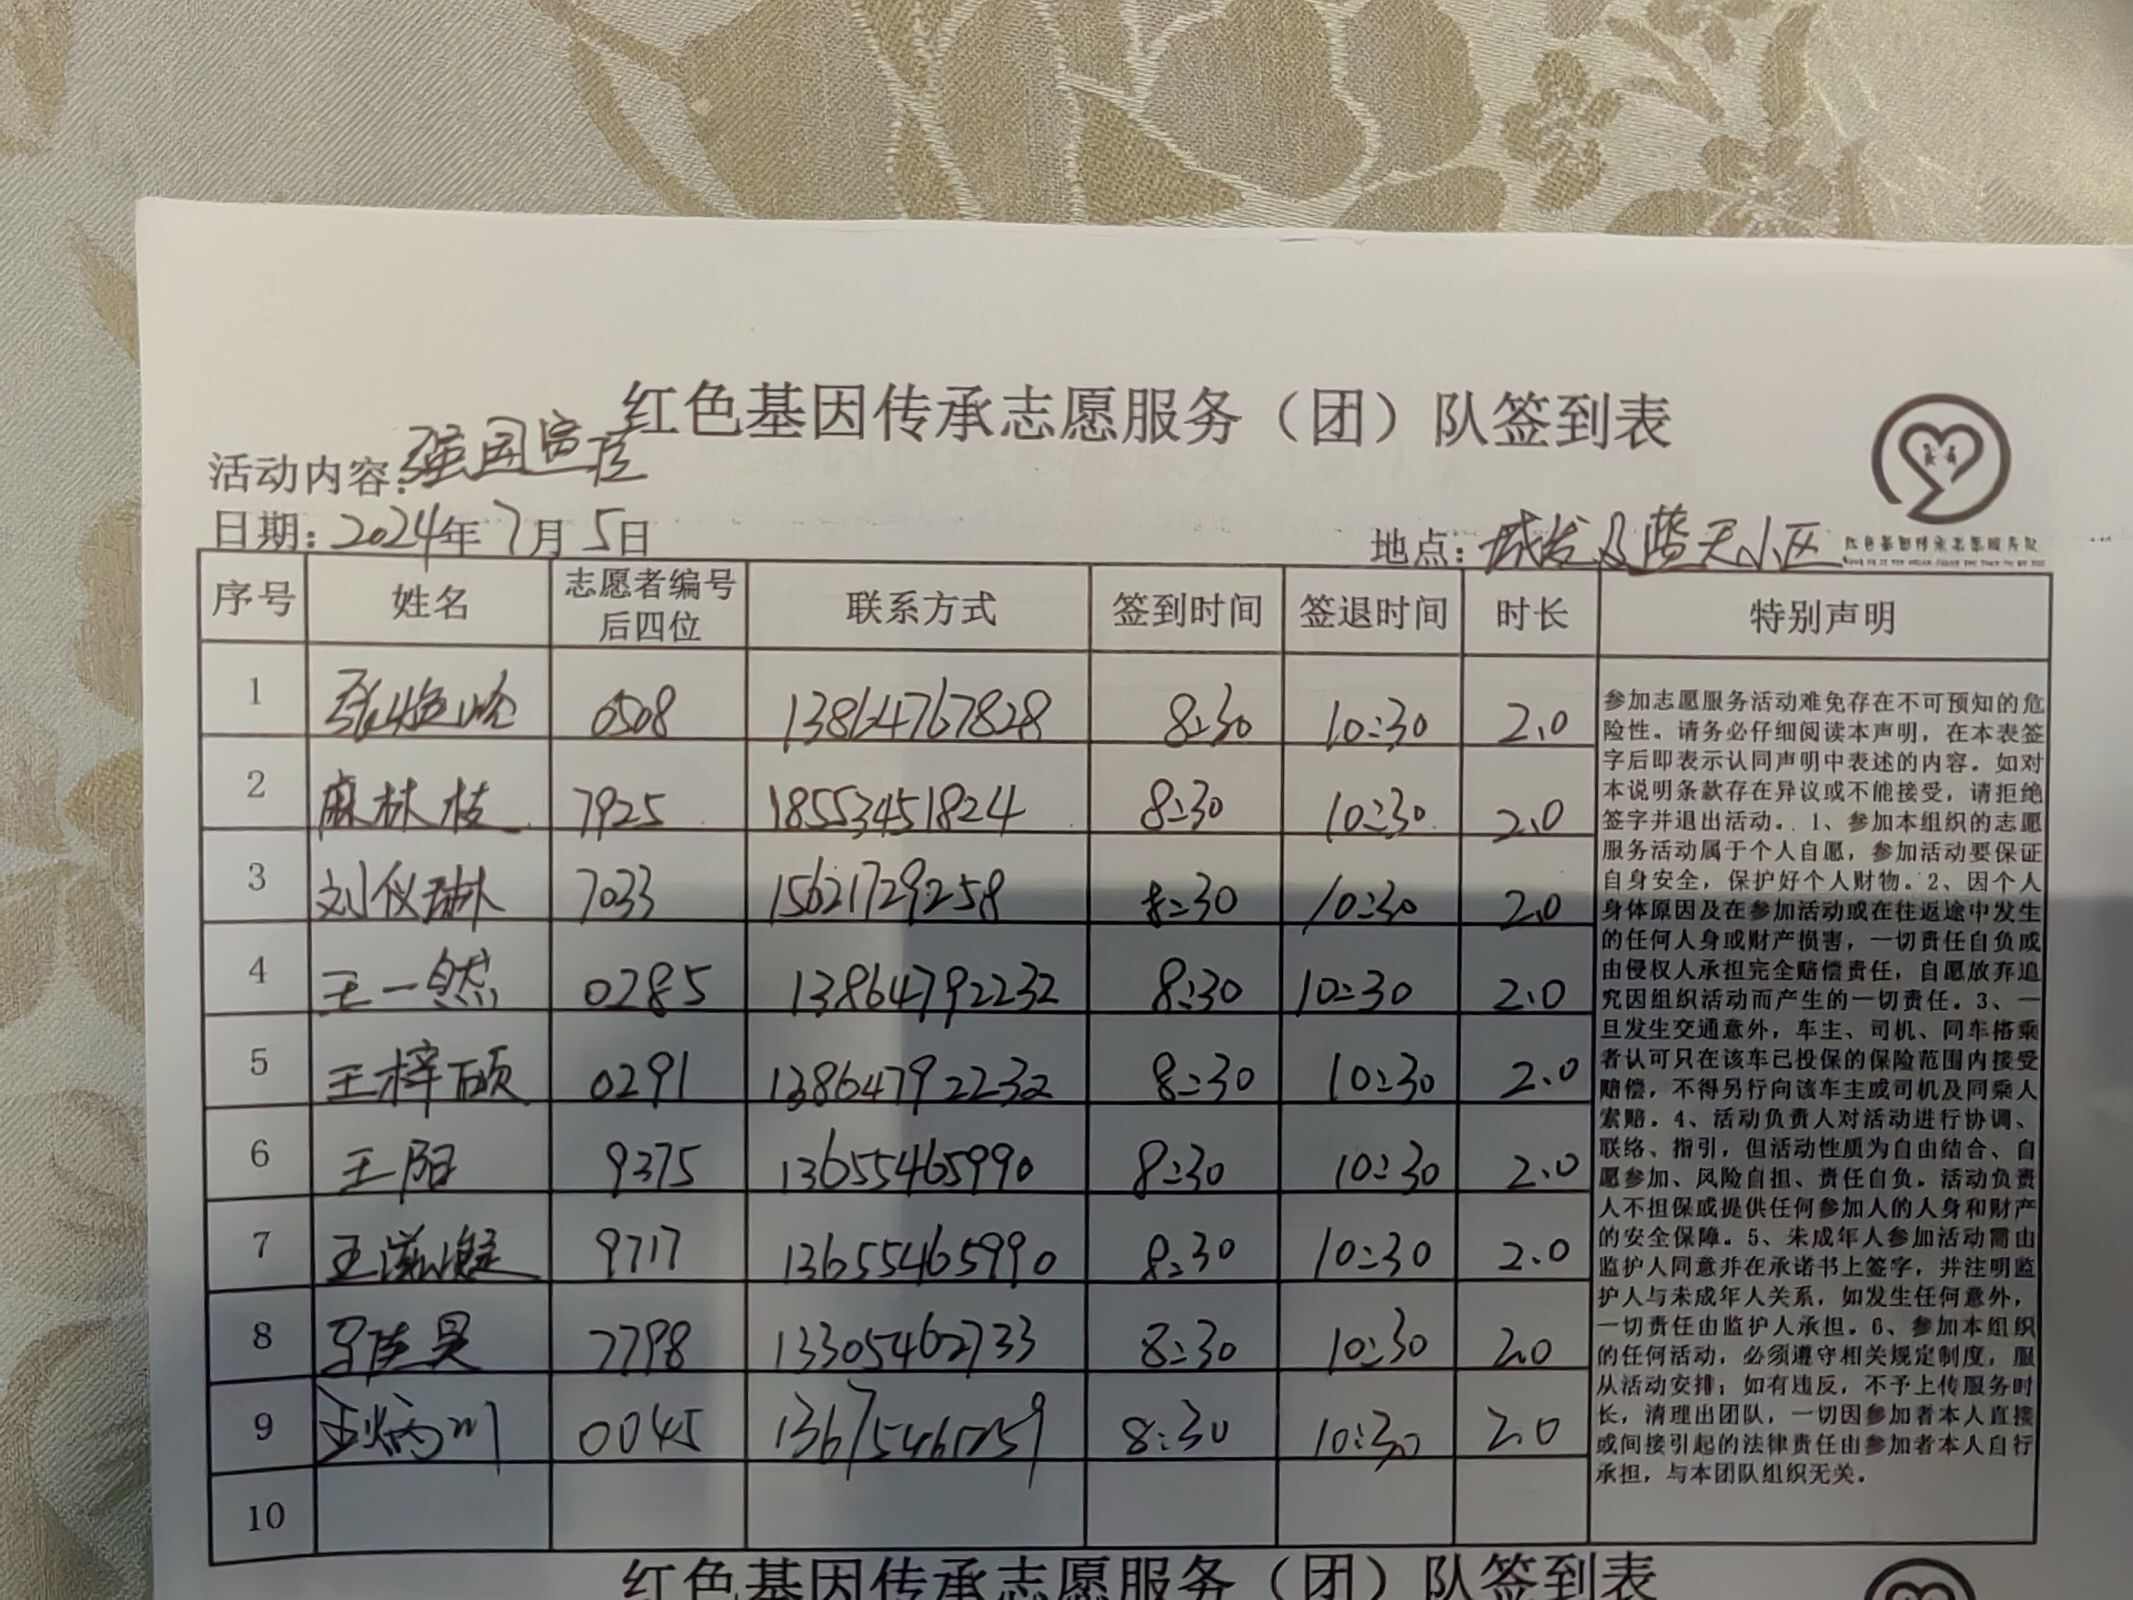 红色基因传承志愿服务（团）队签到表
活动内容：强国宣传
日期：2024年7月5日 地点：城发及蓝天小区
红色基因传承志愿服务队
序号 姓名 志愿者编号后四位 联系方式 签到时间 签退时间 时长 特别声明
1 0508 13864767828 8:30 10:30 2.0
2 麻林枝 7925 18553451824 8:30 10:30 2.0
3 刘仪琳 7033 15621729258 8:30 10:30 2.0
4 王一然 0285 13864792232 8:30 10:30 2.0
5 王梓硕 0291 13864792232 8:30 10:30 2.0
6 王阳 9375 13655465990 8:30 10:30 2.0
7 王滋健 9717 13655465990 8:30 10:30 2.0
8 7798 13305462733 8:30 10:30 2.0
9 王炳川 0045 8:30 10:30 2.0
10
参加志愿服务活动难免存在不可预知的危
险性。请务必仔细阅读本声明，在本表签
字后即表示认同声明中表述的内容。如对
本说明条款存在异议或不能接受，请拒绝
签字并退出活动。1、参加本组织的志愿
服务活动属于个人自愿，参加活动要保证
自身安全，保护好个人财物。2、因个人
身体原因及在参加活动或在往返途中发生
的任何人身或财产损害，一切责任自负或
由侵权人承担完全赔偿责任，自愿放弃追
究因组织活动而产生的一切责任。3、一
旦发生交通意外，车主、司机、同车搭乘
者认可只在该车已投保的保险范围内接受
赔偿，不得另行向该车主或司机及同乘人
索赔。4、活动负责人对活动进行协调、
联络、指引，但活动性质为自由结合、自
愿参加、风险自担、责任自负。活动负责
人不担保或提供任何参加人的人身和财产
的安全保障。5、未成年人参加活动需由
监护人同意并在承诺书上签字，并注明监
护人与未成年人关系，如发生任何意外，
一切责任由监护人承担。6、参加本组织
的任何活动，必须遵守相关规定制度，服
从活动安排；如有违反，不予上传服务时
长，清理出团队，一切因参加者本人直接
或间接引起的法律责任由参加者本人自行
承担，与本团队组织无关。
红色基因传承志愿服务（团）队签到表